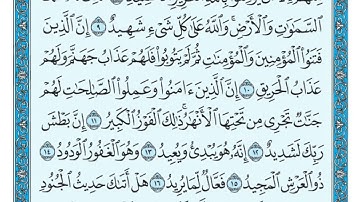 ٱلسَّمَٰوَٰتِ وَٱلْأَرْضِ ۚ وَٱللَّهُ عَلَىٰ كُلِّ شَىْءٍ شَهِيدٌ ۝٩ إِنَّ ٱلَّذِينَ
فَتَنُوا۟ ٱلْمُؤْمِنِينَ وَٱلْمُؤْمِنَٰتِ ثُمَّ لَمْ يَتُوبُوا۟ فَلَهُمْ عَذَابُ جَهَنَّمَ وَلَهُمْ
عَذَابُ ٱلْحَرِيقِ ۝١٠ إِنَّ ٱلَّذِينَ ءَامَنُوا۟ وَعَمِلُوا۟ ٱلصَّٰلِحَٰتِ لَهُمْ
جَنَّٰتٌ تَجْرِى مِن تَحْتِهَا ٱلْأَنْهَٰرُ ۚ ذَٰلِكَ ٱلْفَوْزُ ٱلْكَبِيرُ ۝١١ إِنَّ بَطْشَ
رَبِّكَ لَشَدِيدٌ ۝١٢ إِنَّهُۥ هُوَ يُبْدِئُ وَيُعِيدُ ۝١٣ وَهُوَ ٱلْغَفُورُ ٱلْوَدُودُ ۝١٤
ذُو ٱلْعَرْشِ ٱلْمَجِيدُ ۝١٥ فَعَّالٌ لِّمَا يُرِيدُ ۝١٦ هَلْ أَتَىٰكَ حَدِيثُ ٱلْجُنُودِ